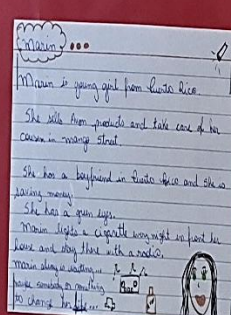 Marin
Marin is young girl from Puerto Rico.
She sells Avon products and take care of her
cousin in mango street
She has a boyfriend in Puerto Rico and she is
saving money.
She has a green eyes.
Marin lights a cigarette every night in front her
house and stay there with a radio.
Marin always is waiting...
somebody or something
to change her life...